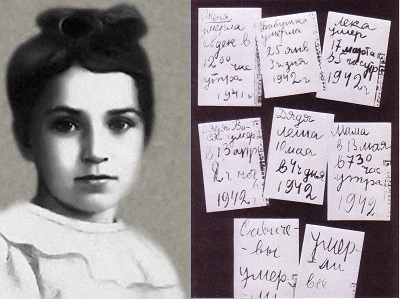 Женя
умерла
28 дек в
12 00 час
утра
1941 г
Бабушка
умерла
25 янв
3 ч дня
1942 г
Лека
умер
17 марта
в 5 час утр
1942 г
Дядя Ва
ся умер
в 13 апр
2 ч ноч
1942 г
Дядя
Леша
10 мая
в 4 ч дня
1942
Мама
в 13 мая
в 7 30
час
утра
1942 г
Савиче-
вы
умер-
ли
умер-
ли
все